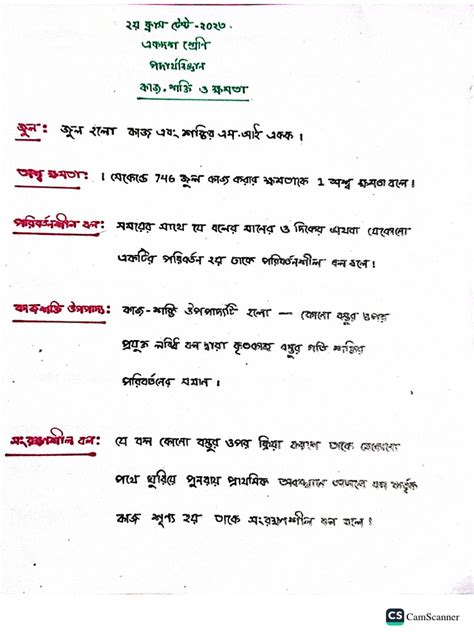 ২য় ক্লাস টেস্ট - ২০২৩
একাদশ শ্রেণি
পদার্থবিজ্ঞান
কাজ, শক্তি ও ক্ষমতা
জুল: জুল হলো কাজ এবং শক্তির এস.আই একক।
অশ্ব ক্ষমতা: । সেকেন্ডে 746 জুল কাজ করার ক্ষমতাকে 1 অশ্ব ক্ষমতা বলে।
পরিবর্তনশীল বল: সময়ের সাথে যে বলের মানের ও দিকের অথবা যেকোনো
একটির পরিবর্তন হয় তাকে পরিবর্তনশীল বল বলে।
কাজশক্তি উপপাদ্য: কাজ-শক্তি উপপাদ্যটি হলো — কোনো বস্তুর ওপর
প্রযুক্ত লব্ধি বল দ্বারা কৃতকাজ বস্তুর গতি শক্তির
পরিবর্তনের সমান।
সংরক্ষণশীল বল: যে বল কোনো বস্তুর ওপর ক্রিয়া করলে তাকে যেকোনো
পথে ঘুরিয়ে পুনরায় প্রাথমিক অবস্থানে আনলে বল কর্তৃক
কাজ শূন্য হয় তাকে সংরক্ষণশীল বল বলে।
CS CamScanner